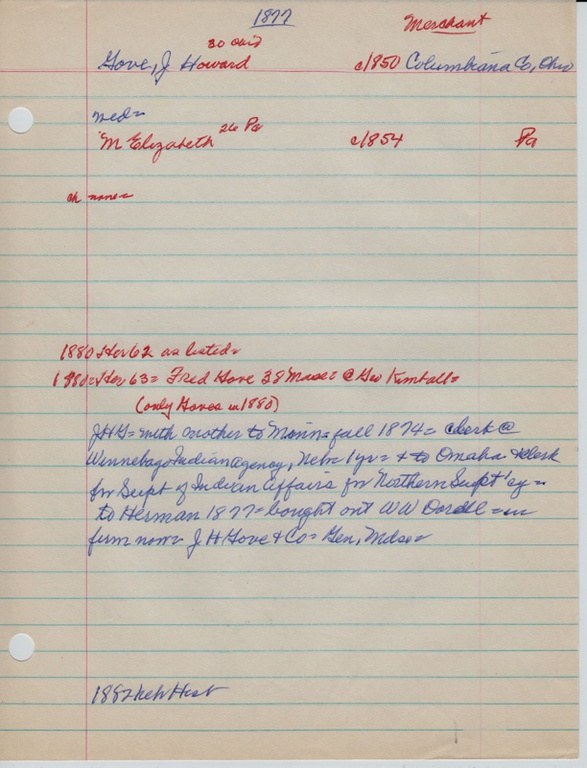 1877
Merchant
30
Gove, J Howard c/1850 Columbiana Co, Ohio
med=
26 Pa
M Elizabeth c/1854 Pa
ch none=
1880 Her 62 as listed=
1880= Her 63= Fred Gove 38 Mass= @ Geo Kimball=
(only Goves in 1880)
JHG= with mother to Monin= fall 1874= clerk @
Winnebago Indian Agency, Nebr 1 yr= + to Omaha + clerk
for Supt of Indian Affairs for Northern Supt'cy =
to Herman 1877= bought out WW =
firm now= J H Gove + Co= Gen, Mdse=
1882 Neb Hist